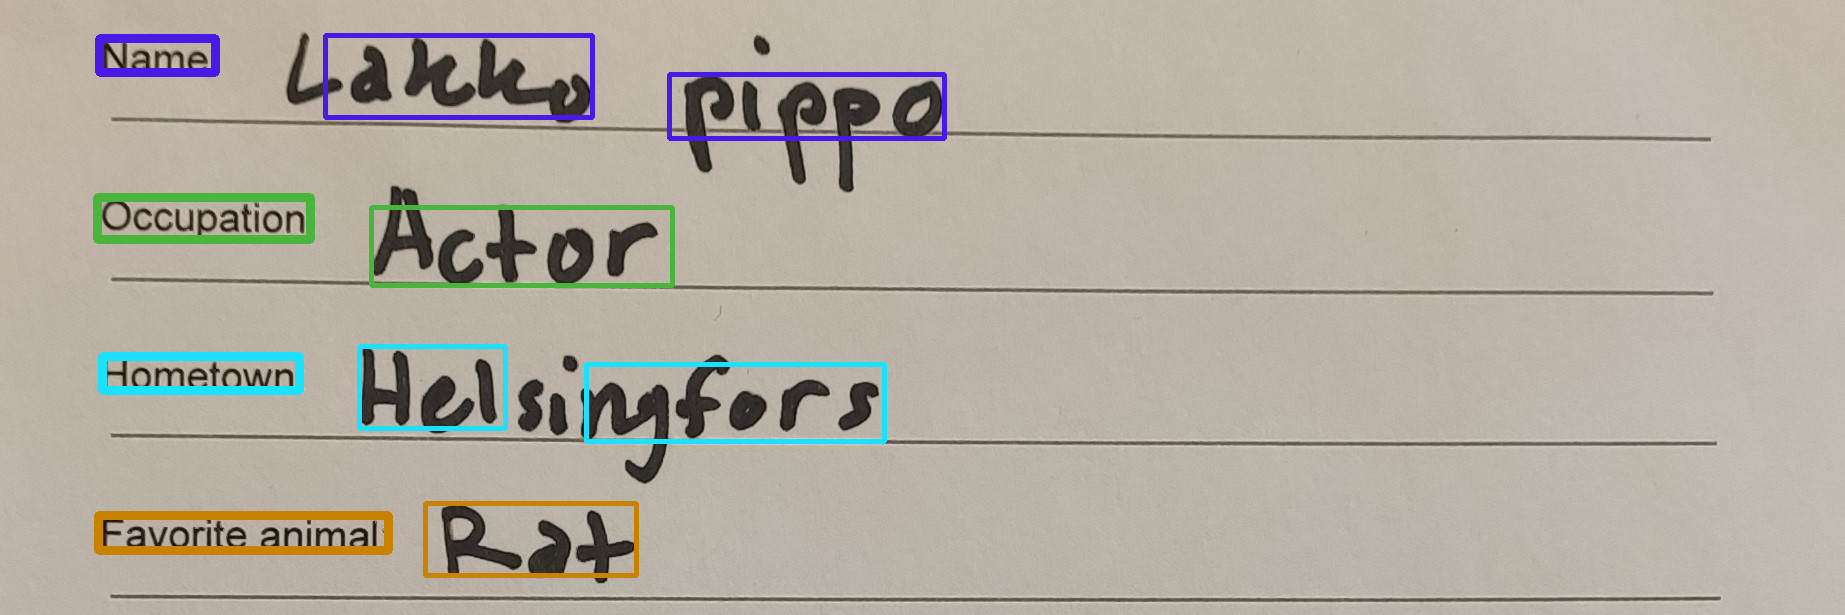 Name Lakko pippo
Occupation Actor
Hometown Helsingfors
Favorite animal Rat